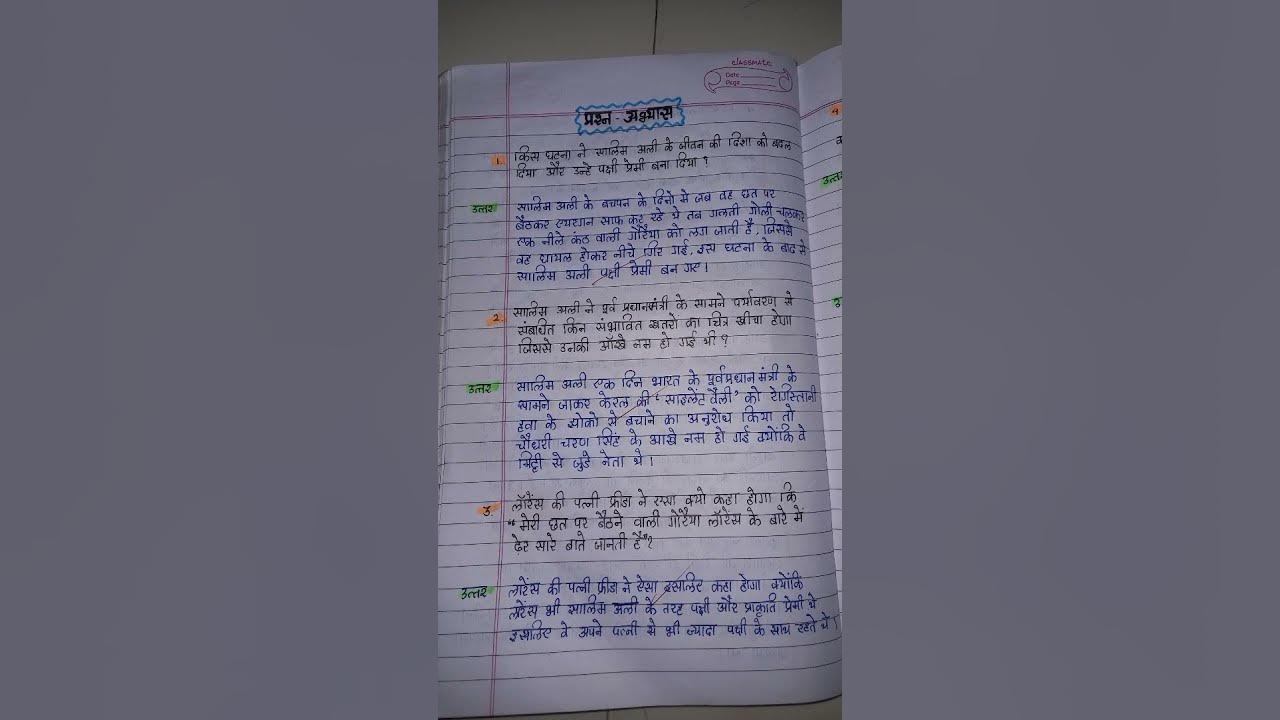 classmate
Date
Page
प्रश्न - अभ्यास
1. किस घटना ने सालिम अली के जीवन की दिशा को बदल
दिया और उन्हे पक्षी प्रेमी बना दिया ?
उत्तर सालिम अली के बचपन के दिनो मे जब वह छत पर
बैठकर एयरगन साफ कर रहे थे तब गलती गोली चलकर
एक नीले कंठ वाली गोरैया को लग जाती है, जिससे
वह घायल होकर नीचे गिर गई, इस घटना के बाद से
सालिम अली पक्षी प्रेमी बन गए।
2. सालिम अली ने पूर्व प्रधानमंत्री के सामने पर्यावरण से
संबधित किन संभावित खतरो का चित्र खींचा होगा
जिससे उनकी आँखे नम हो गई थी ?
उत्तर सालिम अली एक दिन भारत के पूर्वप्रधानमंत्री के
सामने जाकर केरल की ' साइलेंट वैली' को रेगिस्तानी
हवा के झोको से बचाने का अनुरोध किया तो
चौधरी चरण सिंह के आखे नम हो गई क्योकि वे
मिट्टी से जुडे नेता थे।
3. लॉरेंस की पत्नी फ्रीडा ने ऐसा क्यो कहा होगा कि
" मेरी छत पर बैठने वाली गोरैया लॉरेंस के बारे में
ढ़ेर सारे बाते जानती है"?
उत्तर लरेंस की पत्नी फ्रीडा ने ऐसा इसलिए कहा होगा क्योंकि
लरेंस भी सालिम अली के तरह पक्षी और प्राकृति प्रेमी थे
इसलिए वे अपने पत्नी से भी ज्यादा पक्षी के साथ रहते थे।
4
उत्तर